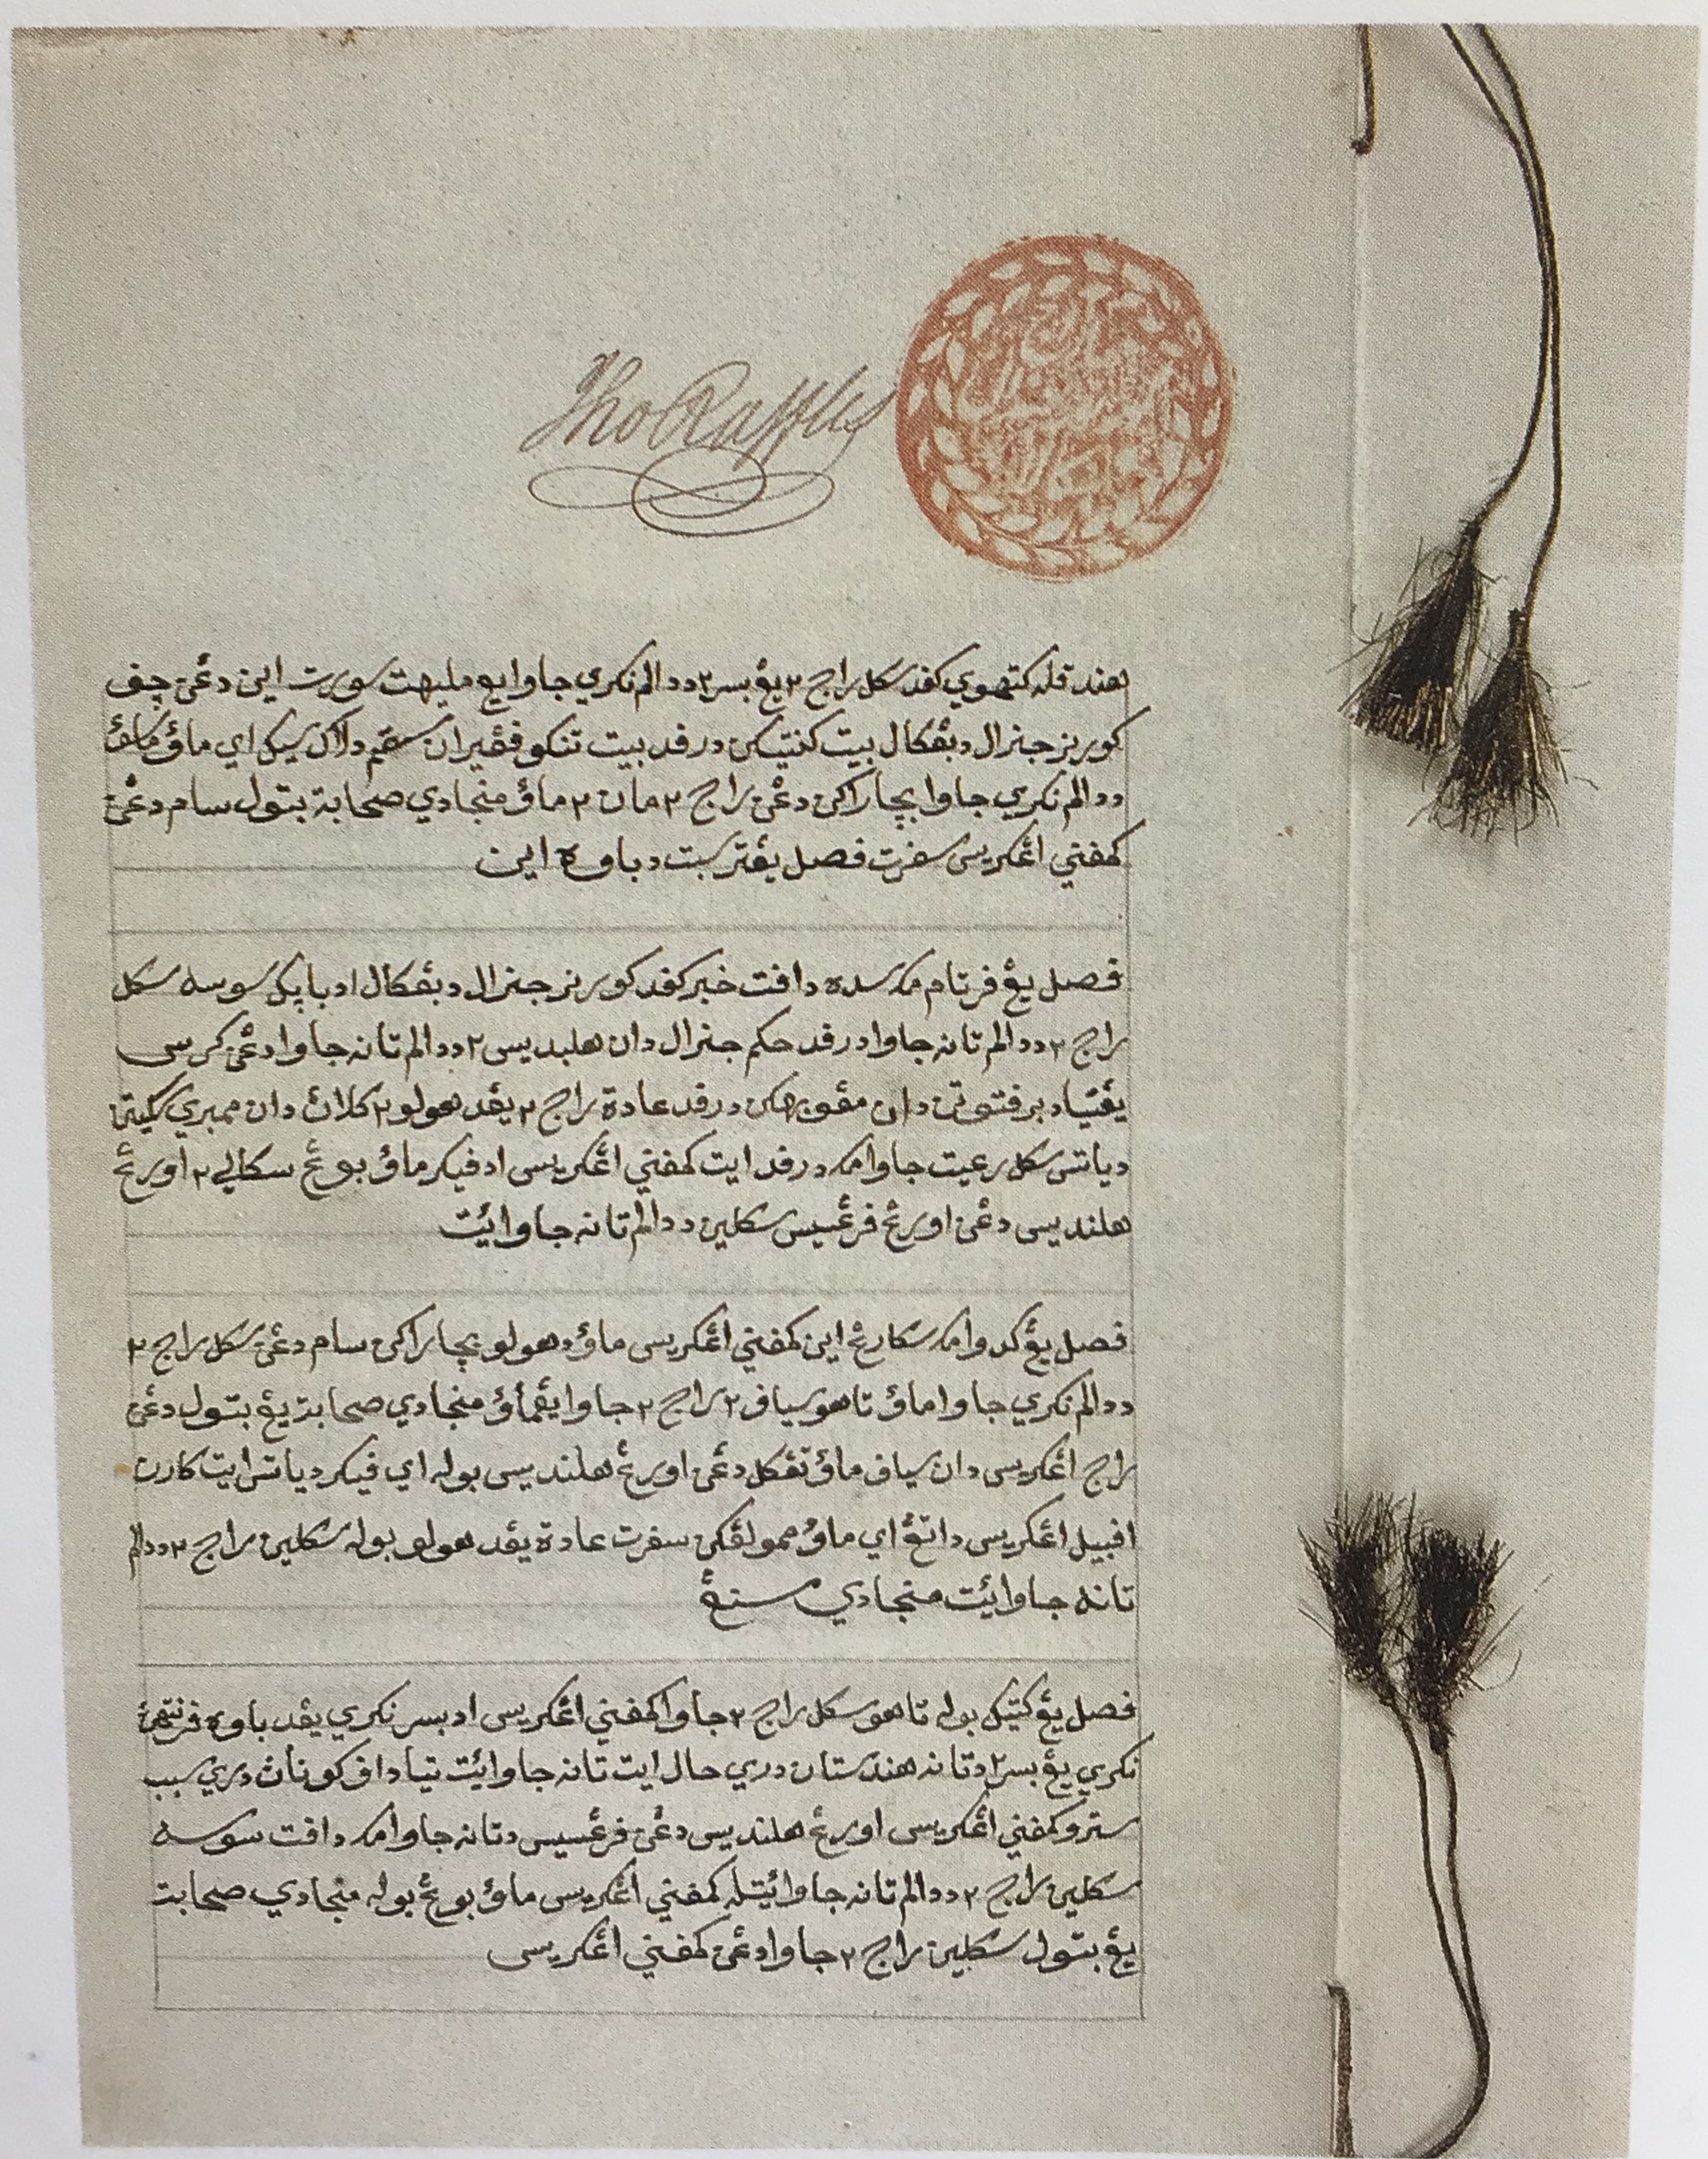 Tho Raffles
هندقله كتهوي كفد سكل راج ٢ يڠ بسر٢ ددالم نكري جاوا يڠ مليهت سورت اين دڠن چف
كورنر جنرال دبڠكال بيت كنتيكن درفد بيت تنكو فڠيران دلاكن اي ماؤ
ددالم نكري جاوا بچاراكن دڠن راج ٢ مان ٢ ماؤ منجادي صحابة بتول سام دڠن
كمفني اڠكريس سفرت فصل يڠترسبت دباوه اين
فصل يڠ فرتام مك سده دافت خبر كفد كورنر جنرال دبڠكال اد باپك سوسه سكل
راج ٢ ددالم تانه جاوا درفد حكم جنرال دان هلنديس ٢ ددالم تانه جاوا دڠن كرس
يڠتياد برفتوتن دان درفد عادة راج ٢ يڠد هولو ٢ كلائن دان ممبري
دياتس سكل رعيت جاوا مك درفد ايت كمفني اڠكريس اد فيكر ماؤ بوڠ سكالي ٢ اورڠ
هلنديس دڠن اورڠ فرڠسيس سكلين ددالم تانه جاوا ائت
فصل يڠ كدوا مك سكارڠ اين كمفني اڠكريس ماؤ دهولو بچاراكن سام دڠن سكل راج ٢
ددالم نكري جاوا ماؤ تاهو سياف ٢ راج ٢ جاوا يڠماؤ منجادي صحابة يڠ بتول دڠن
راج اڠكريس دان سياف ماؤ تڠكل دڠن اورڠ هلنديس بوله اي فيكر دياتس ايت كارن
افبيل اڠكريس داتڠ اي ماؤ ممولڠكن سفرت عادة يڠد هولو بوله سكلين راج ٢ ددالم
تانه جاوا ائت منجادي سنڠ
فصل يڠ كتيك بوله تاهو سكل راج ٢ جاوا كمفني اڠكريس اد بسر نكري يڠد باوه فرنتهن
نكري يڠ بسر٢ دتانه هندستان دري حال ايت تانه جاوا ائت تياد اف كونان دري سبب
سترو كمفني اڠكريس اورڠ هلنديس دڠن فرڠسيس دتانه جاوا مك دافت سوسه
سكلين راج ٢ ددالم تانه جاوا ائتله كمفني اڠكريس ماؤ بوڠ بوله منجادي صحابت
يڠ بتول سكلين راج ٢ جاوا دڠن كمفني اڠكريس